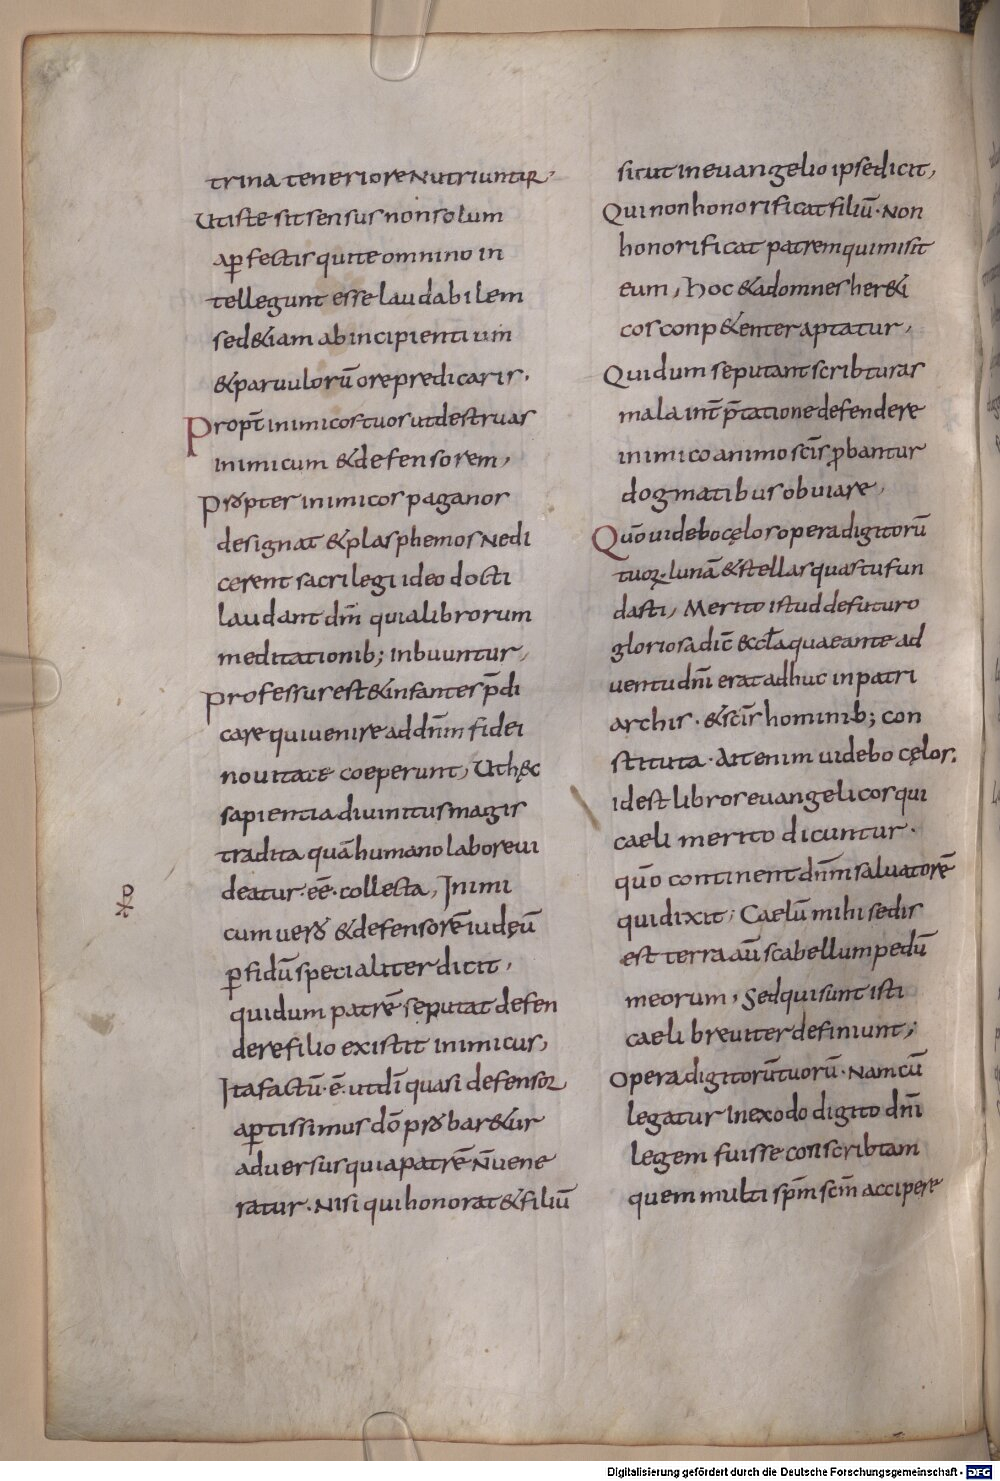 trina teneriore nutriuntur,
Ut iste sit sensus non solum
a ꝑfectis qui te omnino in
tellegunt esse laudabilem
sed &iam ab incipientium
& paruulorū ore predicaris.
Propt̄ inimicos tuos ut destruas
inimicum & defensorem,
Propter inimicos paganos
designat & plasphemos Ne di
cerent sacrilegi ideo docti
laudant dn̄m quia librorum
meditationib; inbuuntur,
professus est & infantes p̄di
care qui uenire ad dn̄m fidei
nouitate coeperunt, Ut hęc
sapientia diuinitus magis
tradita quā humano labore ui
deatur ēē collecta, Inimi
cum uero & defensorē iudęū
ꝑfidū specialiter dicit,
qui dum patrē se putat defen
dere filio existit inimicus,
Ita factū · ē · ut dī quasi defensor
aptissimus dō probar&ur
aduersus quia patrē n̄ uene
ratur. Nisi qui honorat & filiū
sicut in euangelio ipse dicit,
Qui non honorificat filiū · Non
honorificat patrem qui misit
eum, hoc & ad omnes her&i
cos conp&enter aptatur,
Qui dum se putant scribturas
mala int̄p̄tatione defendere
inimico animo scīs ꝓbantur
dogmatibus obuiare,
Qūo uidebo cęlos opera digitorū
tuoꝝ. lunā & stellas quas tu fun
dasti, Merito istud de futuro
gloriosa dic̄ eccl̄a quae ante ad
uentu dn̄i erat adhuc in patri
archis · & scīs hominib; con
stituta · Ait enim uidebo cęlos.
id est libros euangelicos qui
caeli merito dicuntur.
qūo continent dn̄m saluatorē
qui dixit; Caelū mihi sedis
est terra aū scabellum pedū
meorum, Sed qui sunt isti
caeli breuiter definiunt;
Opera digitorū tuorū · Nam cū
legatur in exodo digito dn̄i
legem fuisse conscribtam
quem multi sp̄m scm̄ accipere